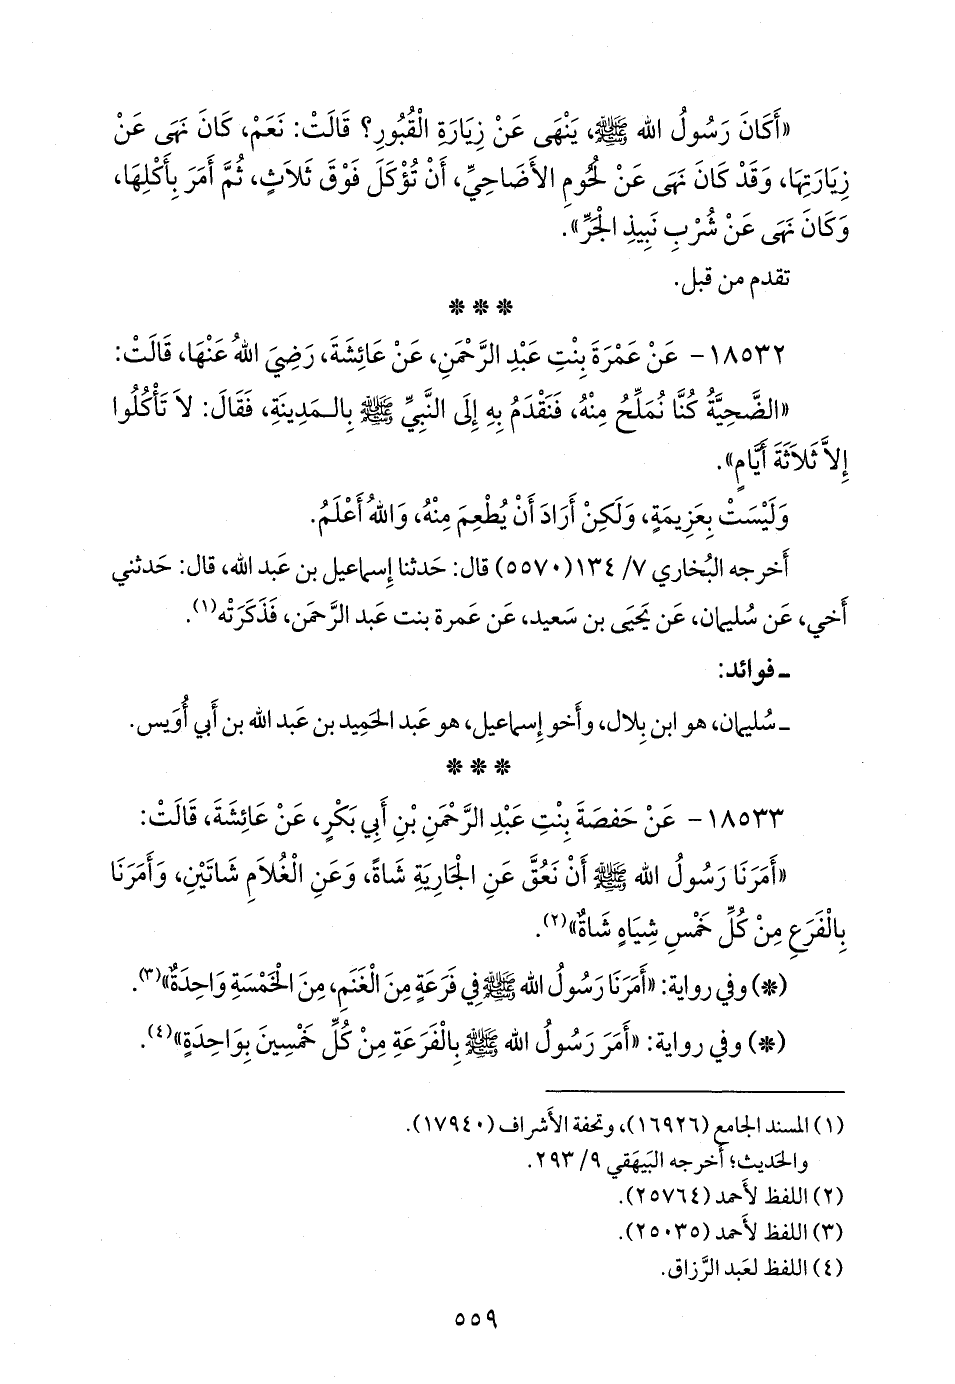 «أَكَانَ رَسُولُ الله ﷺ، يَنْهَى عَنْ زِيَارَةِ الْقُبُورِ؟ قَالَتْ: نَعَمْ، كَانَ نَهَى عَنْ
زِيَارَتِهَا، وَقَدْ كَانَ نَهَى عَنْ لُحُومِ الأَضَاحِيِّ، أَنْ تُؤْكَلَ فَوْقَ ثَلاَثٍ، ثُمَّ أَمَرَ بِأَكْلِهَا،
وَكَانَ نَهَى عَنْ شُرْبِ نَبِيذِ الْجَرِّ».
تقدم من قبل.
* * *
١٨٥٣٢- عَنْ عَمْرَةَ بِنْتِ عَبْدِ الرَّحْمَنِ، عَنْ عَائِشَةَ، رَضِيَ اللهُ عَنْهَا، قَالَتْ:
«الضَّحِيَّةُ كُنَّا نُمَلِّحُ مِنْهُ، فَنَقْدَمُ بِهِ إِلَى النَّبِيِّ ﷺ بِالـمَدِينَةِ، فَقَالَ: لاَ تَأْكُلُوا
إِلاَّ ثَلاَثَةَ أَيَّامٍ».
وَلَيْسَتْ بِعَزِيمَةٍ، وَلَكِنْ أَرَادَ أَنْ يُطْعِمَ مِنْهُ، وَاللهُ أَعْلَمُ.
أَخرجه البُخاري ٧/ ١٣٤(٥٥٧٠) قال: حَدثنا إِسماعيل بن عَبد الله، قال: حَدثني
أَخي، عَن سُليمان، عَن يَحيَى بن سَعيد، عَن عَمرة بنت عَبد الرَّحمَن، فَذَكَرَتْه(١).
ـ فوائد:
ـ سُليمان، هو ابن بِلال، وأَخو إِسماعيل، هو عَبد الحَمِيد بن عَبد الله بن أَبي أُوَيس.
* * *
١٨٥٣٣- عَنْ حَفصَةَ بِنْتِ عَبْدِ الرَّحْمَنِ بْنِ أَبِي بَكْرٍ، عَنْ عَائِشَةَ، قَالَتْ:
«أَمَرَنَا رَسُولُ الله ﷺ أَنْ نَعُقَّ عَنِ الْجَارِيَةِ شَاةً، وَعَنِ الْغُلاَمِ شَاتَيْنِ، وَأَمَرَنَا
بِالْفَرَعِ مِنْ كُلِّ خَمْسِ شِيَاهٍ شَاةٌ»(٢).
(*) وفي رواية: «أَمَرَنَا رَسُولُ الله ﷺ فِي فَرَعَةٍ مِنَ الْغَنَمِ، مِنَ الْخَمْسَةِ وَاحِدَةٌ»(٣).
(*) وفي رواية: «أَمَرَ رَسُولُ الله ﷺ بِالْفَرَعَةِ مِنْ كُلِّ خَمْسِينَ بِوَاحِدَةٍ»(٤).
(١) المسند الجامع (١٦٩٢٦)، وتحفة الأَشراف (١٧٩٤٠).
والحَديث؛ أَخرجه البَيهَقي ٩/ ٢٩٣.
(٢) اللفظ لأَحمد (٢٥٧٦٤).
(٣) اللفظ لأَحمد (٢٥٠٣٥).
(٤) اللفظ لعَبد الرَّزاق.
٥٥٩